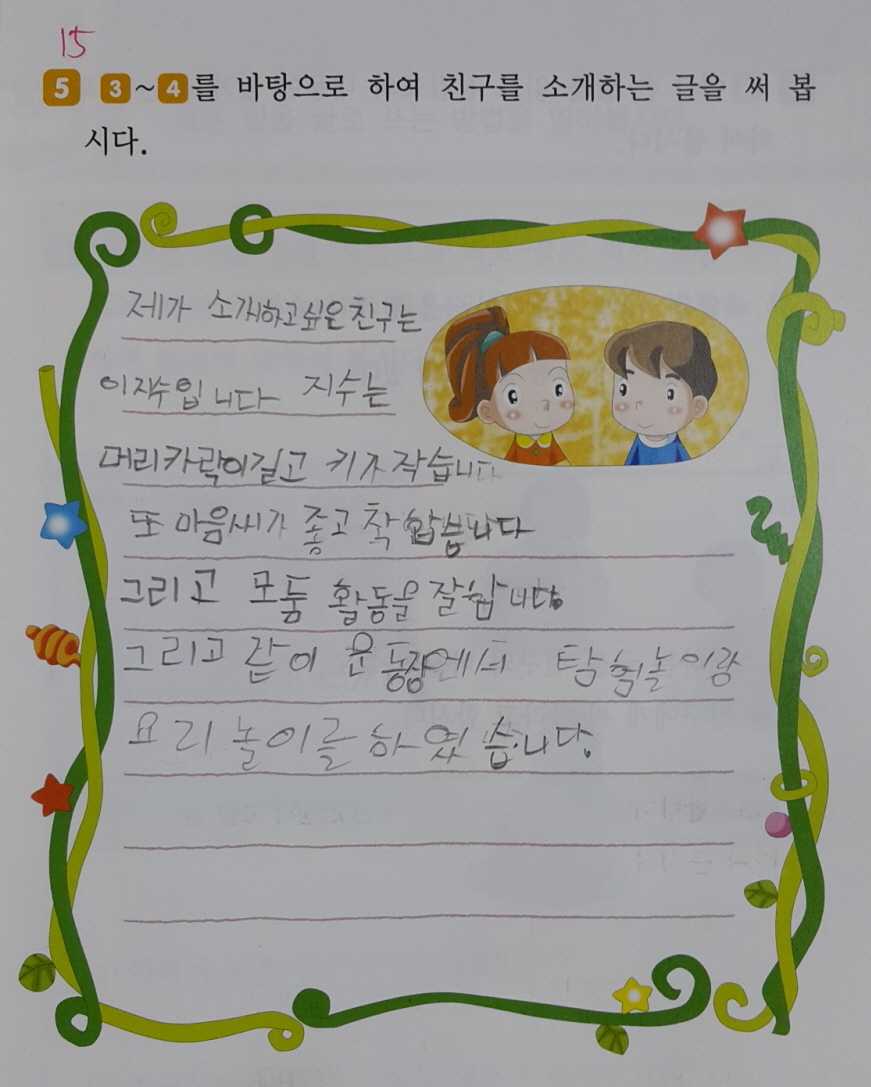 15
5 3~4를 바탕으로 하여 친구를 소개하는 글을 써 봅
시다.
제가 소개하고싶은친구는
이지수입니다 지수는
머리카락이길고 키가작습니다
또 마음씨가 좋고 착합습니다
그리고 모둠 활동을 잘합니다.
그리고 같이 운동장에서 탐험놀이랑
요리 놀이를 하였습니다.